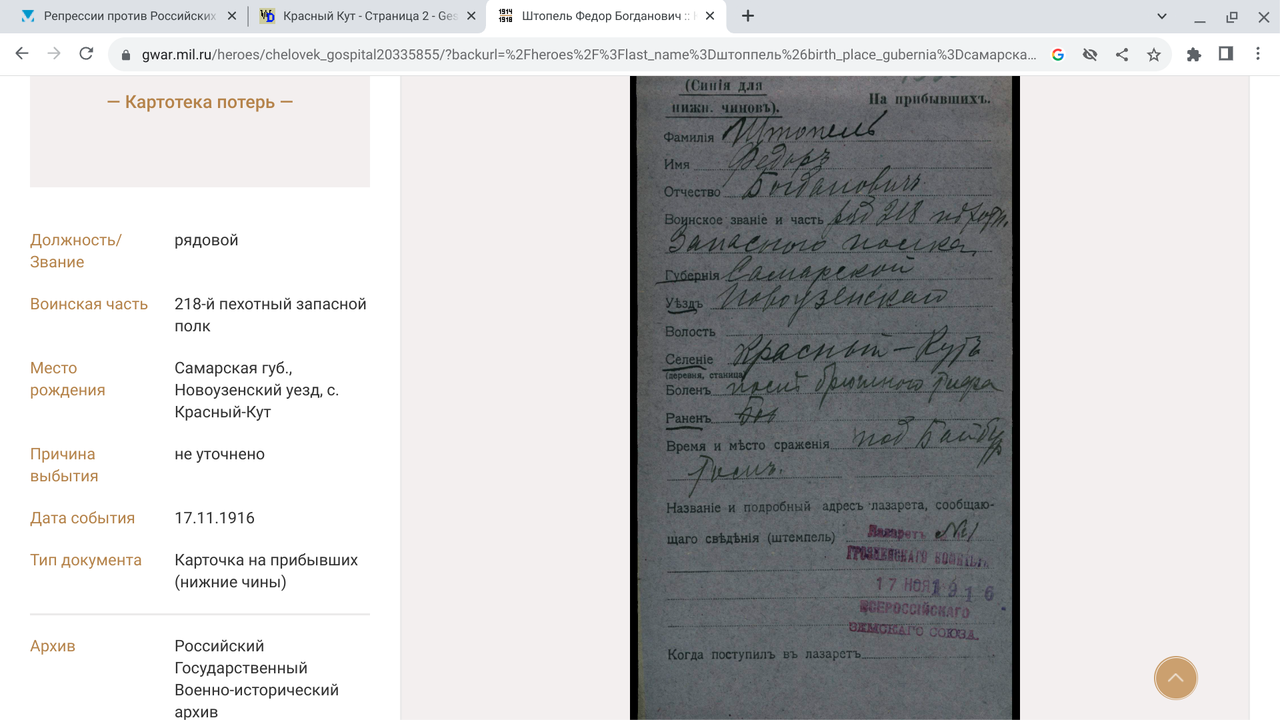 Репрессии против Российских
Красный Кут - Страница 2 - Ges
Штопель Федор Богданович ::
gwar.mil.ru/heroes/chelovek_gospital20335855/?backurl=%2Fheroes%2F%3Flast_name%3Dштоппель%26birth_place_gubernia%3Dсамарска...
— Картотека потерь —
Должность/
Звание
рядовой
Воинская часть
218-й пехотный запасной
полк
Место
рождения
Самарская губ.,
Новоузенский уезд, с.
Красный-Кут
Причина
выбытия
не уточнено
Дата события
17.11.1916
Тип документа
Карточка на прибывших
(нижние чины)
Архив
Российский
Государственный
Военно-исторический
архив
(Синія для
нижн. чиновъ).
На прибывшихъ.
Фамилія Штопель
Имя Федоръ
Отчество Богдановичъ
Воинское званіе и часть ряд 218
Запасного полка
Губернія Самарской
Уѣздъ Новоузенскаго
Волость
Селеніе Красный-Кутъ
(деревня, станица)
Боленъ послѣ брюшного тифа
Раненъ
Время и мѣсто сраженія под
Названіе и подробный адресъ лазарета, сообщаю-
щаго свѣдѣнія (штемпель) Лазаретъ №1
17 НОЯ 1916
ВСЕРОССІЙСКАГО
ЗЕМСКАГО СОЮЗА.
Когда поступилъ въ лазаретъ